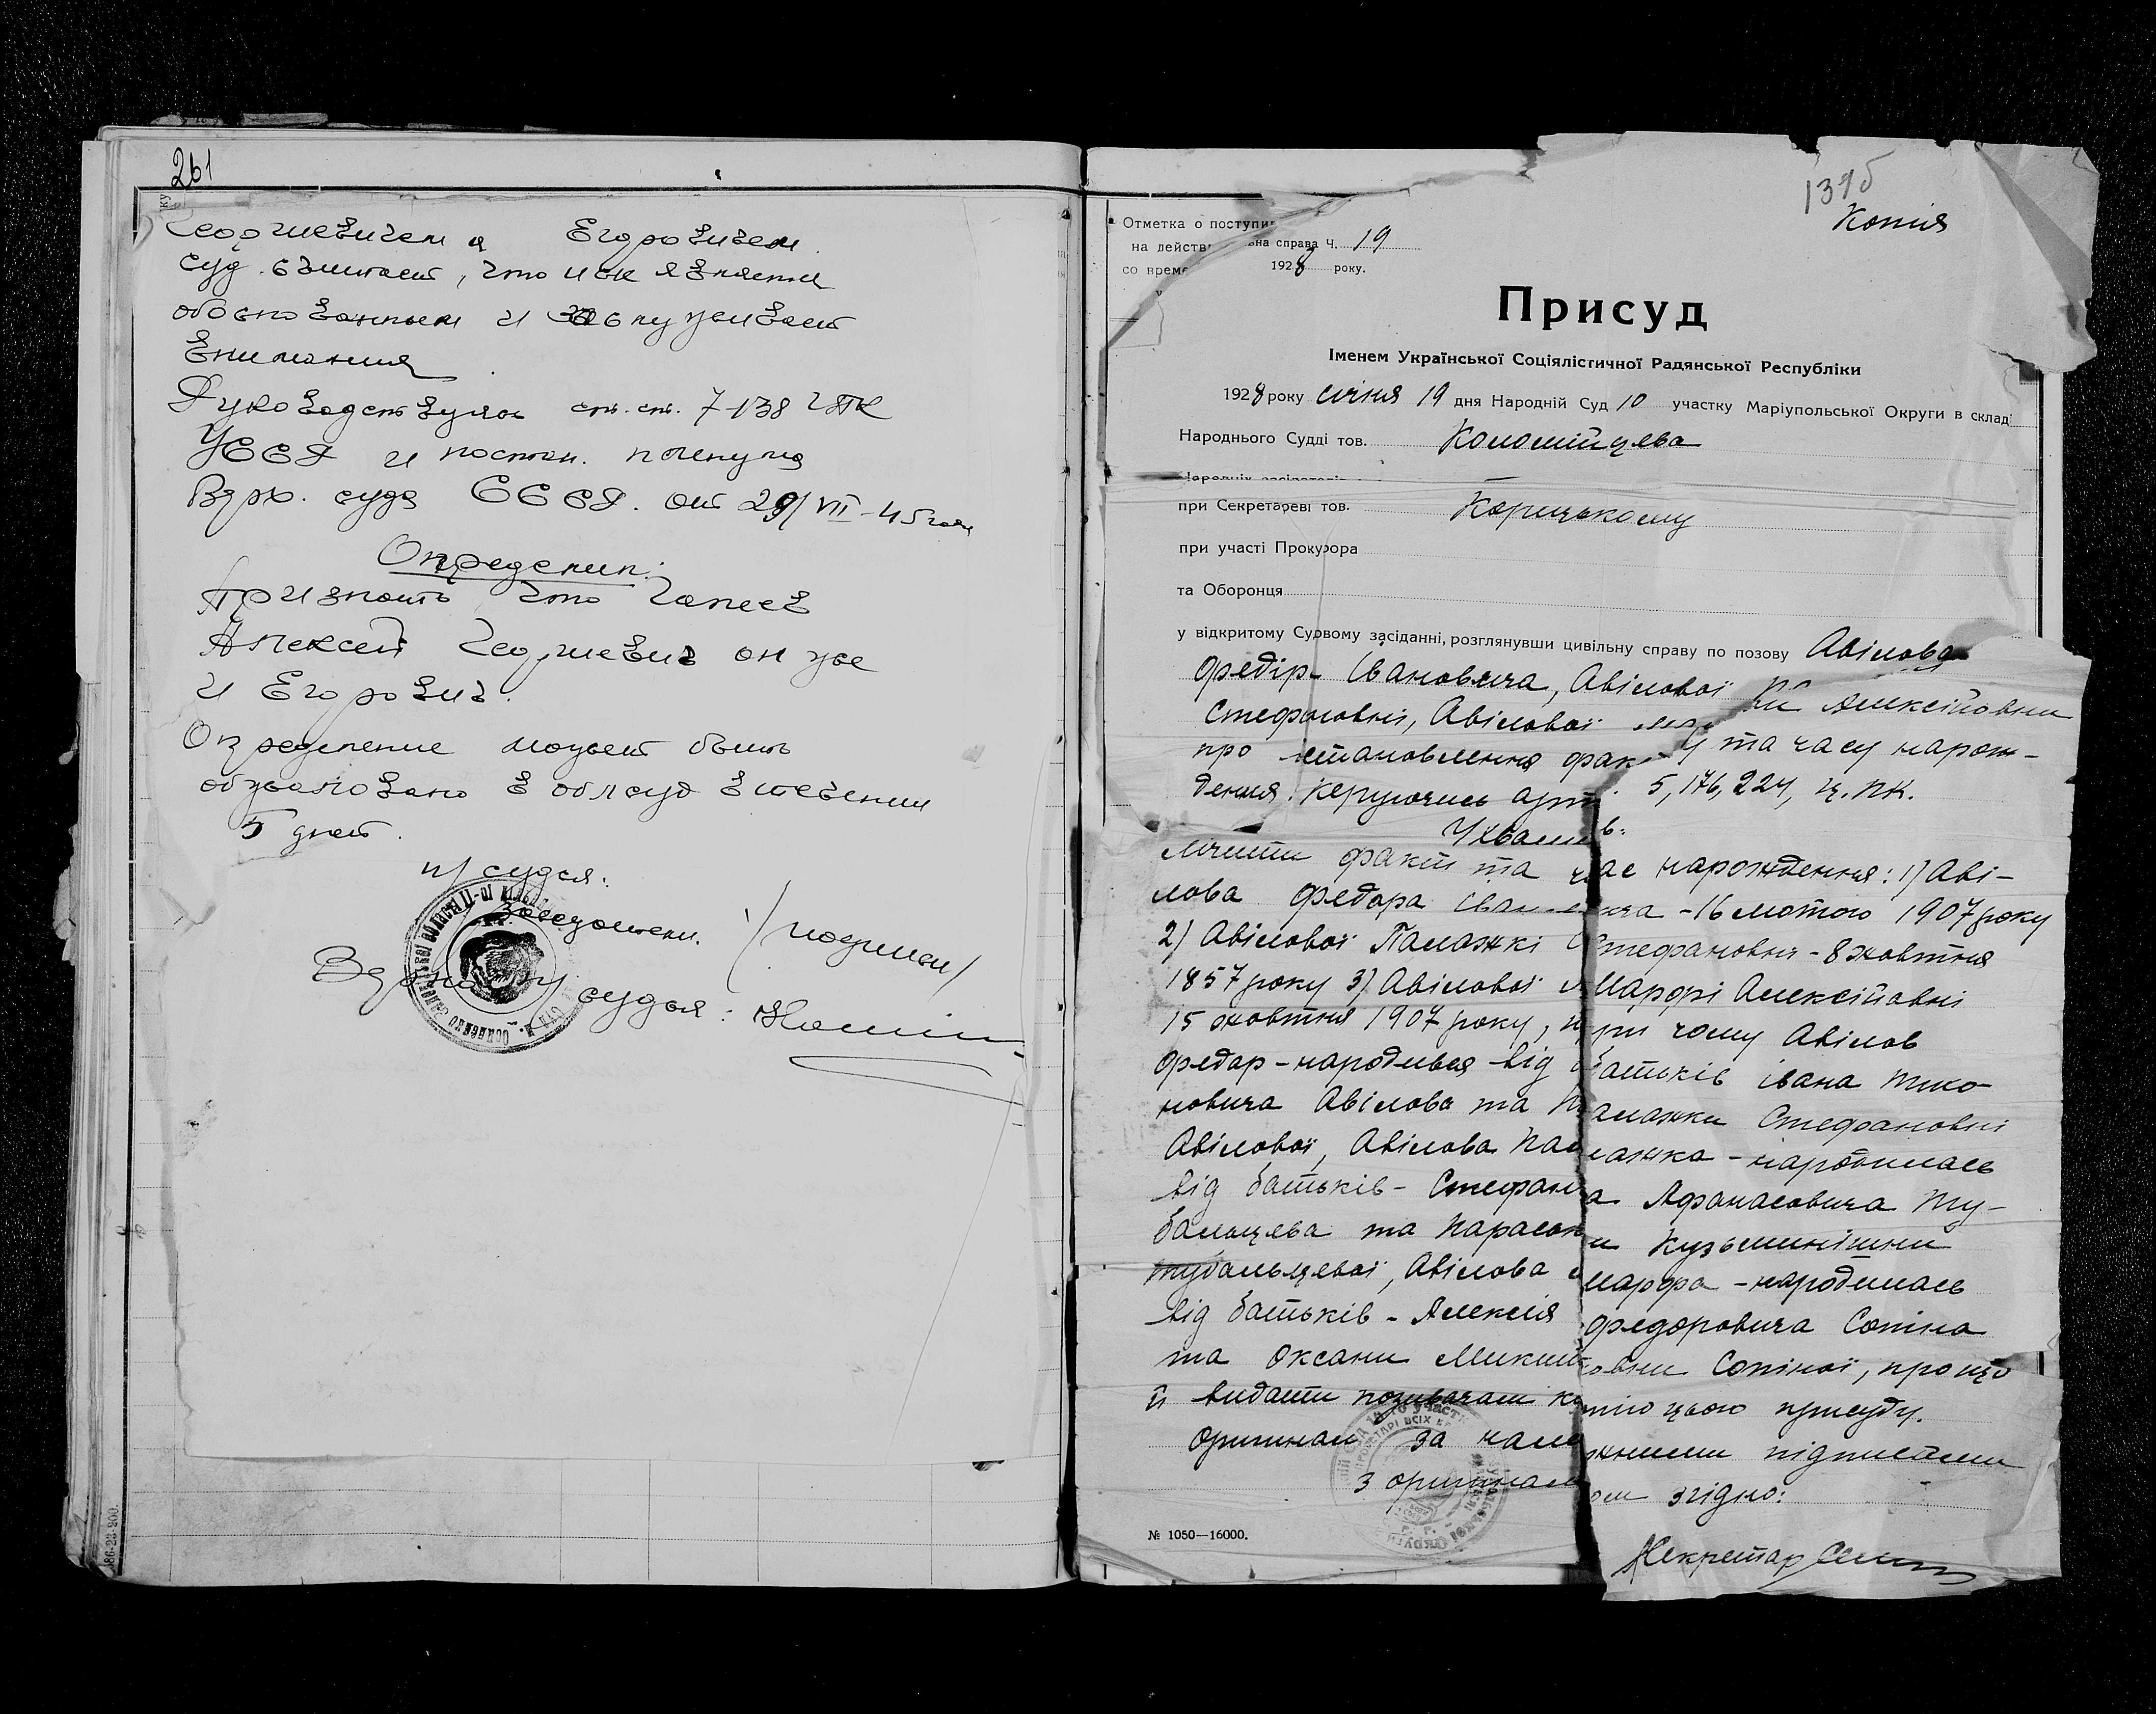 261
Георгиевичем и Егоровичем
суд считает, что иск является
обоснованным и заслуживает
внимания
Руководствуясь ст. ст. 7-138 ГПК
УССР и постан. пленума
Верх. суда СССР. от 29/VII-45 года
Определил:
Признать что
Алексей Георгиевич он же
и Егорович.
Определение может быть
обжаловано в облсуд в течении
5 дней.
п/ судья:
/подписи/
судья:
139б
Копія
Отметка о поступи
на действ ьна справа ч. 19
со време 1928 року.
Присуд
Іменем Української Соціялістичної Радянської Республіки
1928 року січня 19 дня Народній Суд 10 участку Маріупольської Округи в складі
Народнього Судді тов. Коломійцева
при Секретареві тов. Корицькому
при участі Прокурора
та Оборонця
у відкритому Судовому засіданні, розглянувши цивільну справу по позову Авілова
Федір Івановича, Авілової Алексійовни
Стефановні, Авілової
про установлення факту та часу нарож-
дення. Керуючись арт. 5, 176, 224, ц. пк.
Ухвалив:
лічити факт та час нарождення: 1) Аві-
лова Федора Івановича - 16 лютого 1907 року
2) Авілової Палажкі Стефановні - 8 жовтня
1857 року 3) Авілової Марфі Алексійовні
15 жовтня 1907 року, при чому Авілов
Федар - народився від батьків івана Тихо-
новича Авілова та Палажки Стефановні
Авілової, Авілова Палажка - народилась
від батьків - Стефана Афанасовича Ту-
бальцева та Параски Кузьминішни
Тубальцевої, Авілова Марфа - народилась
від батьків - Алексія Федоровича Сопіна
та Оксани Сопіної, про що
й видати позивачам копію цього присуду.
Оригинал за належними підписами
з оригиналом згідно:
№ 1050—16000.
Секретар